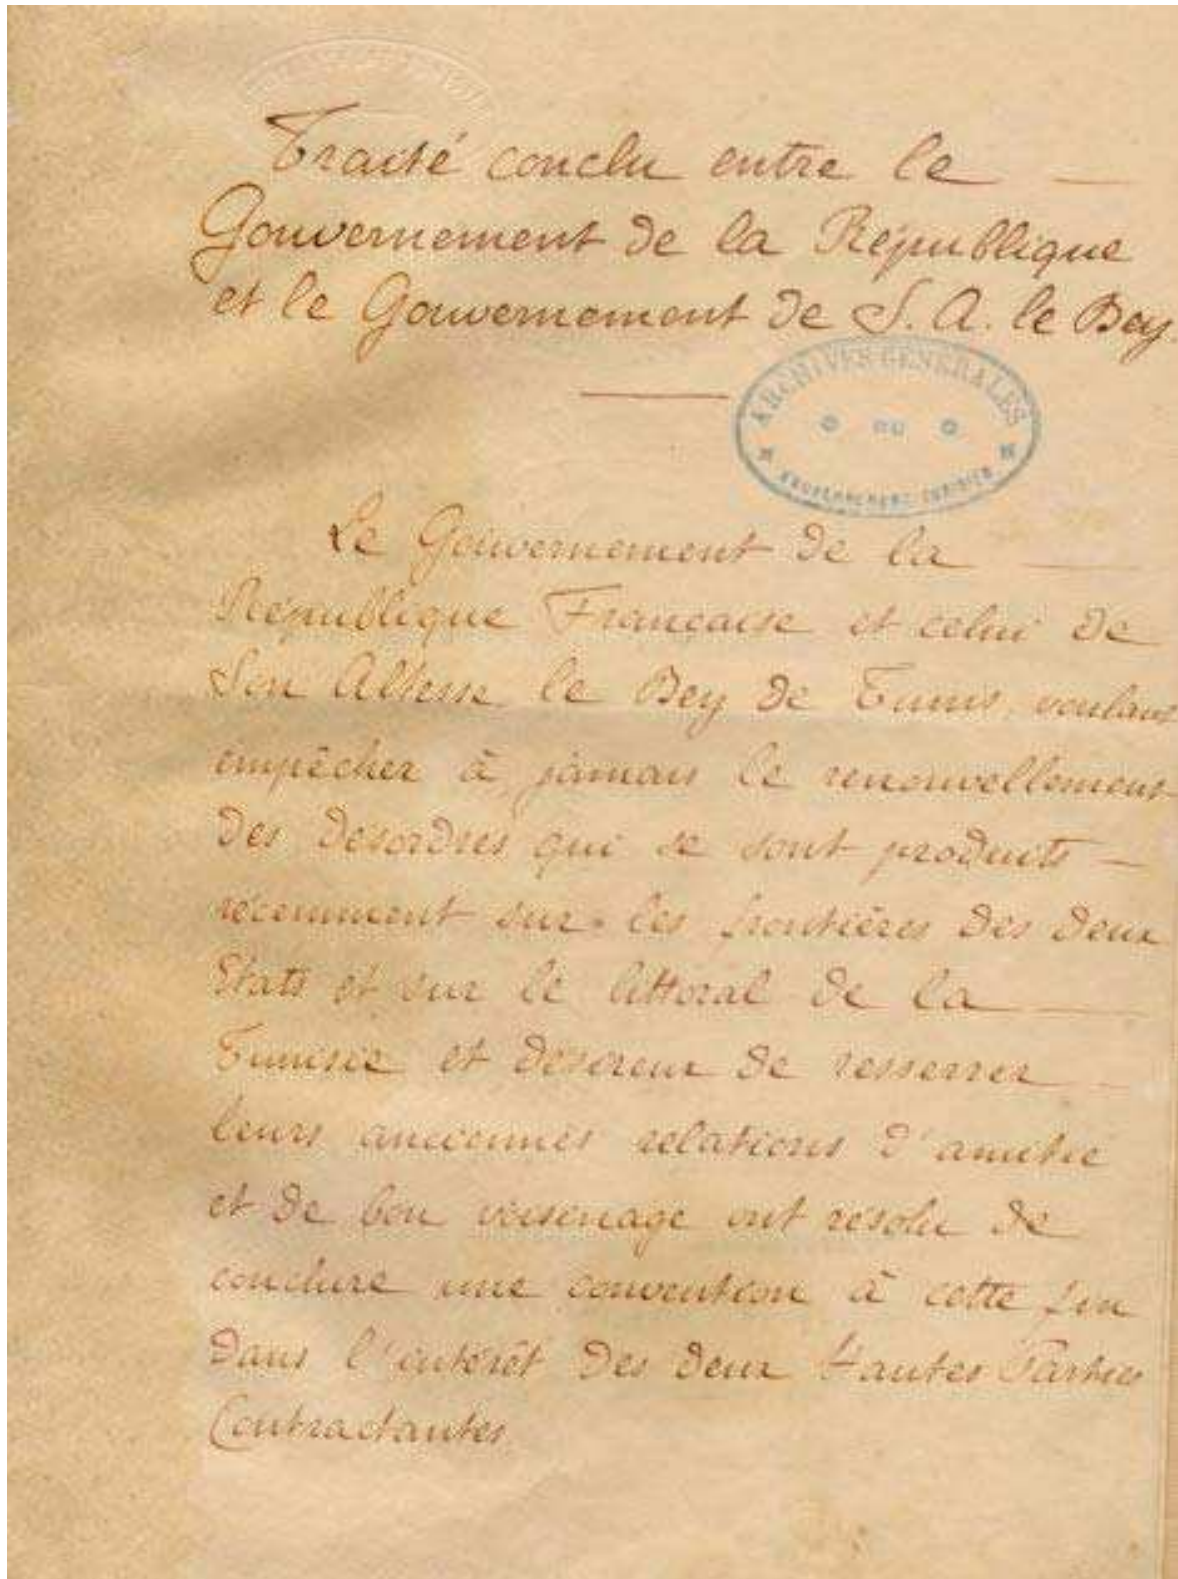 Traité conclu entre le
Gouvernement de la République
et le Gouvernement de S. A. le Bey.
ARCHIVES GENERALES
DU
GOUVERNEMENT TUNISIEN
Le Gouvernement de la
République Française et celui de
Son Altesse le Bey de Tunis, voulant
empêcher à jamais le renouvellement
des désordres qui se sont produits
récemment sur les frontières des deux
Etats et sur le littoral de la
Tunisie et désireux de resserrer
leurs anciennes relations d'amitié
et de bon voisinage ont résolu de
conclure une convention à cette fin
dans l'intérêt des deux Hautes Parties
Contractantes.